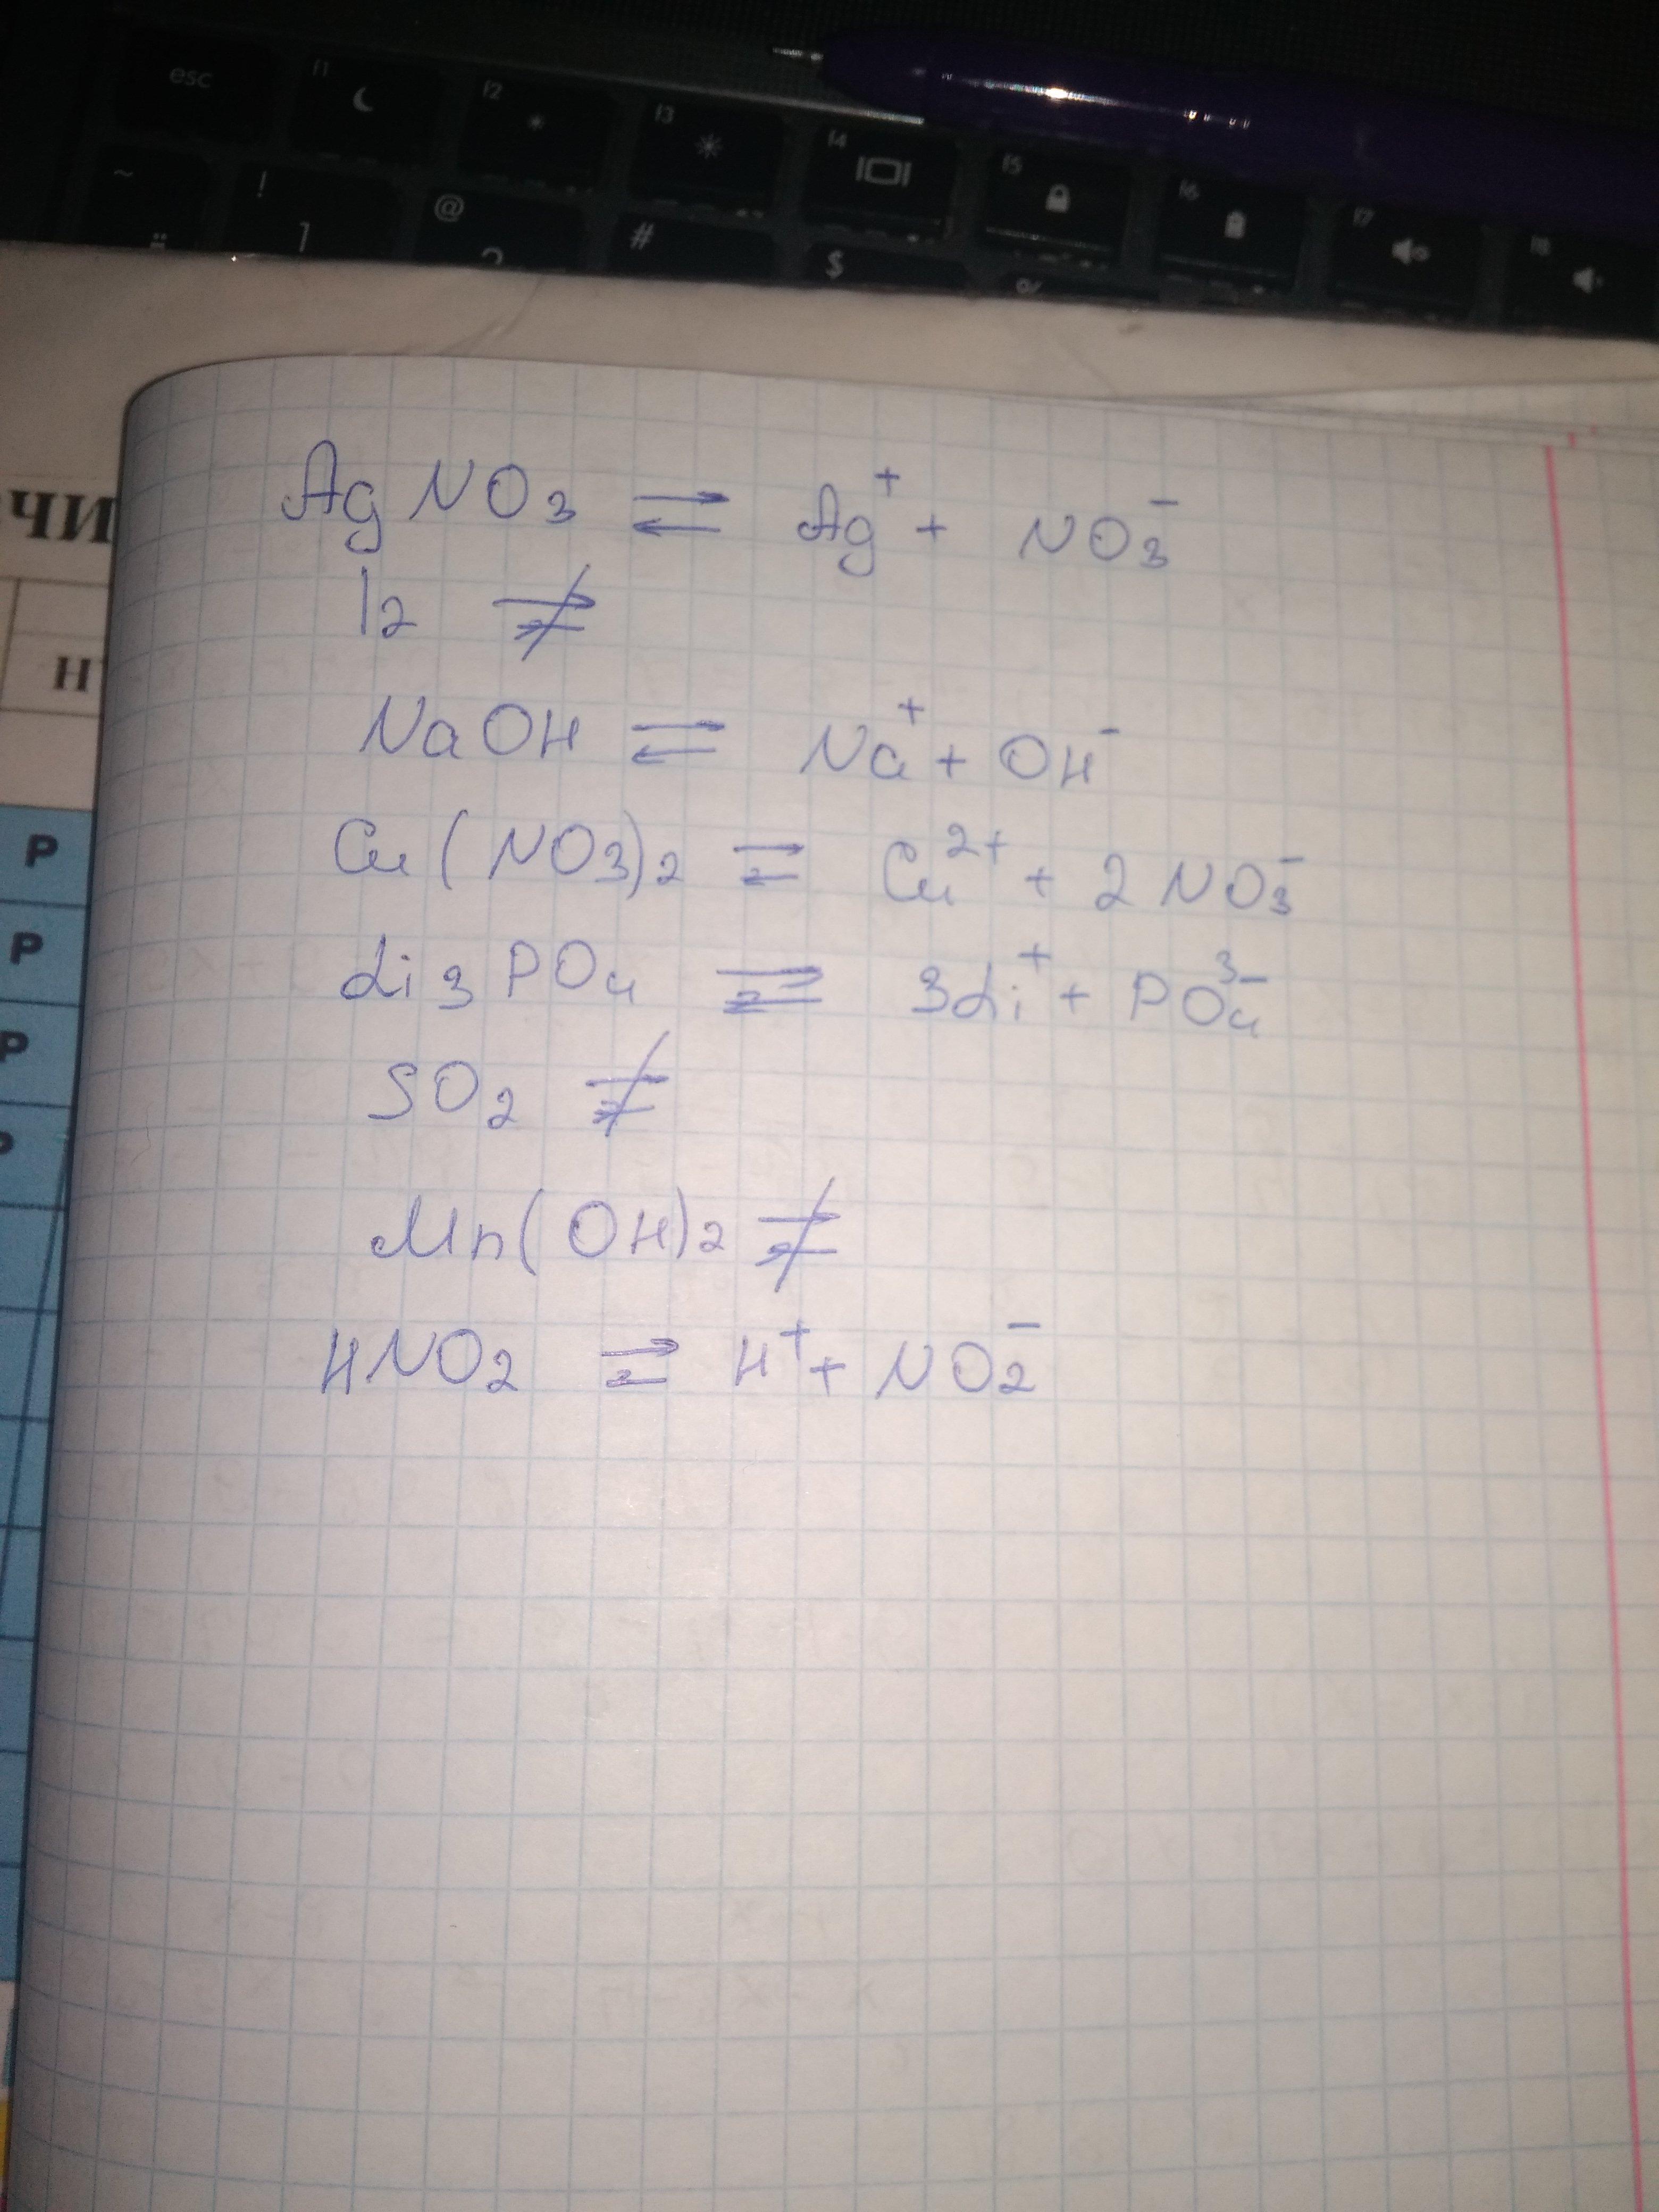 esc f1 f2 f3 f4 f5 f6 f7 f8
~ ! @ # $
1 2
ЧИ
Н
Р
Р
Р
Р
AgNO₃ ⇄ Ag⁺ + NO₃⁻
I₂ ⇄̸
NaOH ⇄ Na⁺ + OH⁻
Cu(NO₃)₂ ⇄ Cu²⁺ + 2NO₃⁻
Li₃PO₄ ⇄ 3Li⁺ + PO₄³⁻
SO₂ ⇄̸
Mn(OH)₂ ⇄̸
HNO₂ ⇄ H⁺ + NO₂⁻